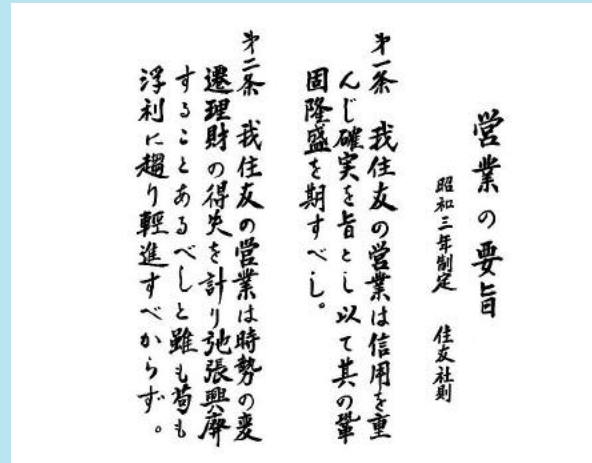 営業の要旨
昭和三年制定 住友社則
第一条 我住友の営業は信用を重
んじ確実を旨とし以て其の鞏
固隆盛を期すべし。
第二条 我住友の営業は時勢の変
遷理財の得失を計り弛張興廃
することあるべしと雖も苟も
浮利に趨り軽進すべからず。